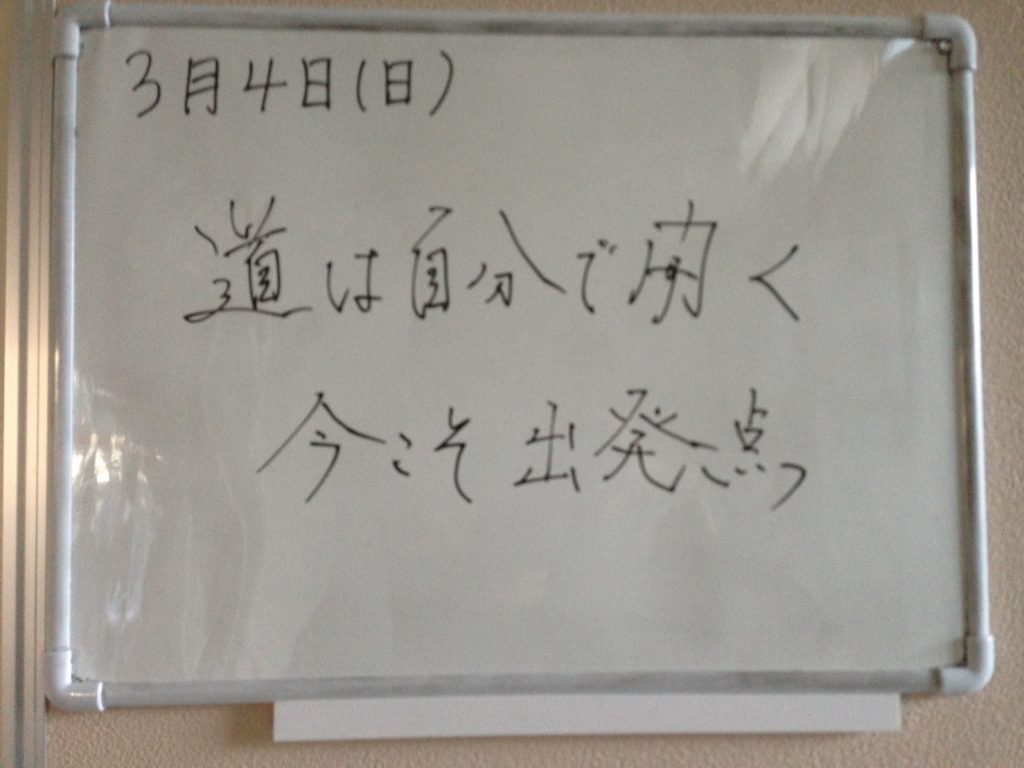 3月4日(日)
道は自分で開く
今こそ出発点